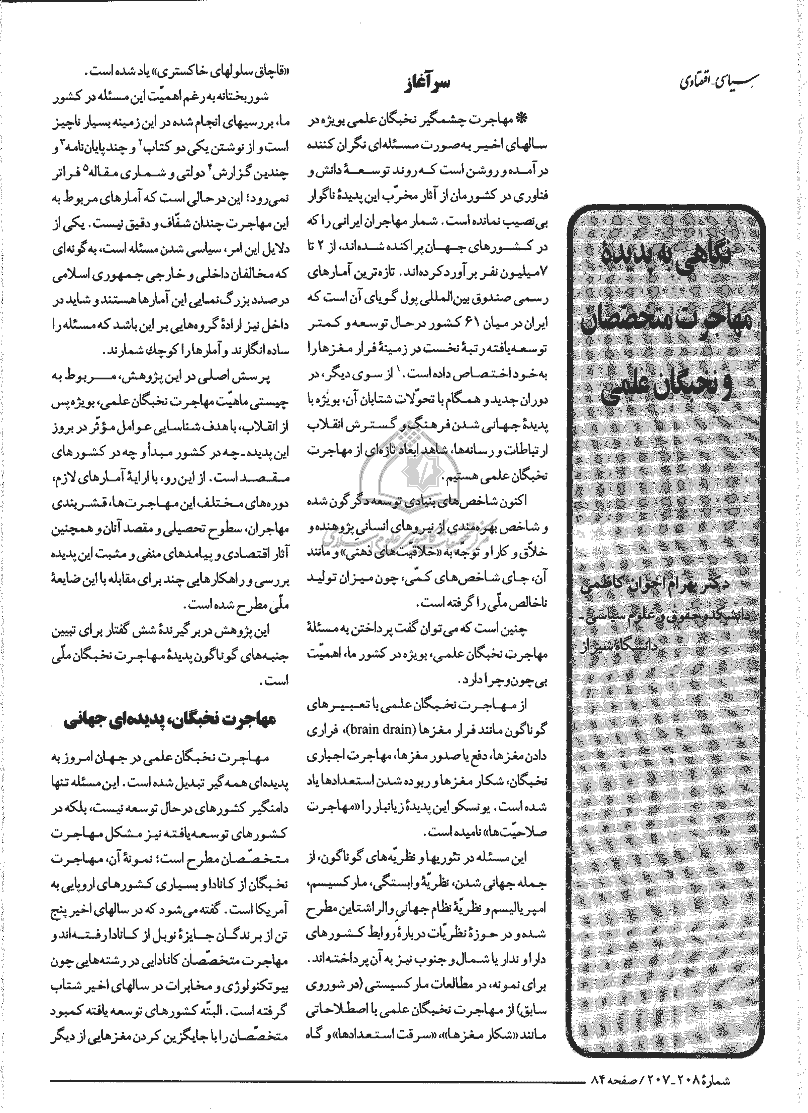 سیاسی-اقتصادی
نگاهی به پدیدهٔ
مهاجرت متخصصان
و نخبگان علمی
دکتر بهرام اخوان کاظمی
دانشکده حقوق و علوم سیاسی -
دانشگاه شیراز
سرآغاز
❋ مهاجرت چشمگیر نخبگان علمی بویژه در
سالهای اخیر به‌صورت مسئله‌ای نگران کننده
درآمده و روشن است که روند توسعهٔ دانش و
فناوری در کشورمان از آثار مخرّب این پدیدهٔ ناگوار
بی‌نصیب نمانده است. شمار مهاجران ایرانی را که
در کشورهای جهان پراکنده شده‌اند، از ۲ تا
۷میلیون نفر برآورد کرده‌اند. تازه‌ترین آمارهای
رسمی صندوق بین‌المللی پول گویای آن است که
ایران در میان ۶۱ کشور در حال توسعه و کمتر
توسعه‌یافته رتبهٔ نخست در زمینهٔ فرار مغزها را
به‌خود اختصاص داده است.۱ از سوی دیگر، در
دوران جدید و همگام با تحوّلات شتابان آن، بویژه با
پدیدهٔ جهانی شدن فرهنگ و گسترش انقلاب
ارتباطات و رسانه‌ها، شاهد ابعاد تازه‌ای از مهاجرت
نخبگان علمی هستیم.
اکنون شاخص‌های بنیادی توسعه دگرگون شده
و شاخص بهره‌مندی از نیروهای انسانی پژوهنده و
خلّاق و کارا و توجه به «خلاقیت‌های ذهنی» و مانند
آن، جای شاخص‌های کمّی، چون میزان تولید
ناخالص ملّی را گرفته است.
چنین است که می‌توان گفت پرداختن به مسئلهٔ
مهاجرت نخبگان علمی، بویژه در کشور ما، اهمیّت
بی‌چون‌وچرا دارد.
از مهاجرت نخبگان علمی با تعبیرهای
گوناگون مانند فرار مغزها (brain drain)، فراری
دادن مغزها، دفع یا صدور مغزها، مهاجرت اجباری
نخبگان، شکار مغزها و ربوده شدن استعدادها یاد
شده است. یونسکو این پدیدهٔ زیانبار را «مهاجرت
صلاحیّت‌ها» نامیده است.
این مسئله در تئوریها و نظریّه‌های گوناگون، از
جمله جهانی شدن، نظریّهٔ وابستگی، مارکسیسم،
امپریالیسم و نظریّهٔ نظام جهانی والراشتاین مطرح
شده و در حوزهٔ نظریّات دربارهٔ روابط کشورهای
دارا و ندار یا شمال و جنوب نیز به آن پرداخته‌اند.
برای نمونه، در مطالعات مارکسیستی (در شوروی
سابق) از مهاجرت نخبگان علمی با اصطلاحاتی
مانند «شکار مغزها»، «سرقت استعدادها» و گاه
«قاچاق سلولهای خاکستری» یاد شده است.
شوربختانه به رغم اهمیّت این مسئله در کشور
ما، بررسیهای انجام شده در این زمینه بسیار ناچیز
است و از نوشتن یکی دو کتاب۲ و چند پایان‌نامه۳ و
چندین گزارش۴ دولتی و شماری مقاله۵ فراتر
نمی‌رود؛ این در حالی است که آمارهای مربوط به
این مهاجرت چندان شفّاف و دقیق نیست. یکی از
دلایل این امر، سیاسی شدن مسئله است، به‌گونه‌ای
که مخالفان داخلی و خارجی جمهوری اسلامی
درصدد بزرگ‌نمایی این آمارها هستند و شاید در
داخل نیز ارادهٔ گروه‌هایی بر این باشد که مسئله را
ساده انگارند و آمارها را کوچک شمارند.
پرسش اصلی در این پژوهش، مربوط به
چیستی ماهیّت مهاجرت نخبگان علمی، بویژه پس
از انقلاب، با هدف شناسایی عوامل مؤثّر در بروز
این پدیده-چه در کشور مبدأ و چه در کشورهای
مقصد است. از این رو، با ارایهٔ آمارهای لازم،
دوره‌های مختلف این مهاجرت‌ها، قشربندی
مهاجران، سطوح تحصیلی و مقصد آنان و همچنین
آثار اقتصادی و پیامدهای منفی و مثبت این پدیده
بررسی و راهکارهایی چند برای مقابله با این ضایعهٔ
ملّی مطرح شده است.
این پژوهش دربرگیرندهٔ شش گفتار برای تبیین
جنبه‌های گوناگون پدیدهٔ مهاجرت نخبگان ملّی
است.
مهاجرت نخبگان، پدیده‌ای جهانی
مهاجرت نخبگان علمی در جهان امروز به
پدیده‌ای همه‌گیر تبدیل شده است. این مسئله تنها
دامنگیر کشورهای درحال توسعه نیست، بلکه در
کشورهای توسعه‌یافته نیز مشکل مهاجرت
متخصّصان مطرح است؛ نمونهٔ آن، مهاجرت
نخبگان از کانادا و بسیاری کشورهای اروپایی به
آمریکا است. گفته می‌شود که در سالهای اخیر پنج
تن از برندگان جایزهٔ نوبل از کانادا رفته‌اند و
مهاجرت متخصّصان کانادایی در رشته‌هایی چون
بیوتکنولوژی و مخابرات در سالهای اخیر شتاب
گرفته است. البتّه کشورهای توسعه یافته کمبود
متخصّصان را با جایگزین کردن مغزهایی از دیگر
شمارهٔ ۲۰۸-۲۰۷ / صفحه ۸۴